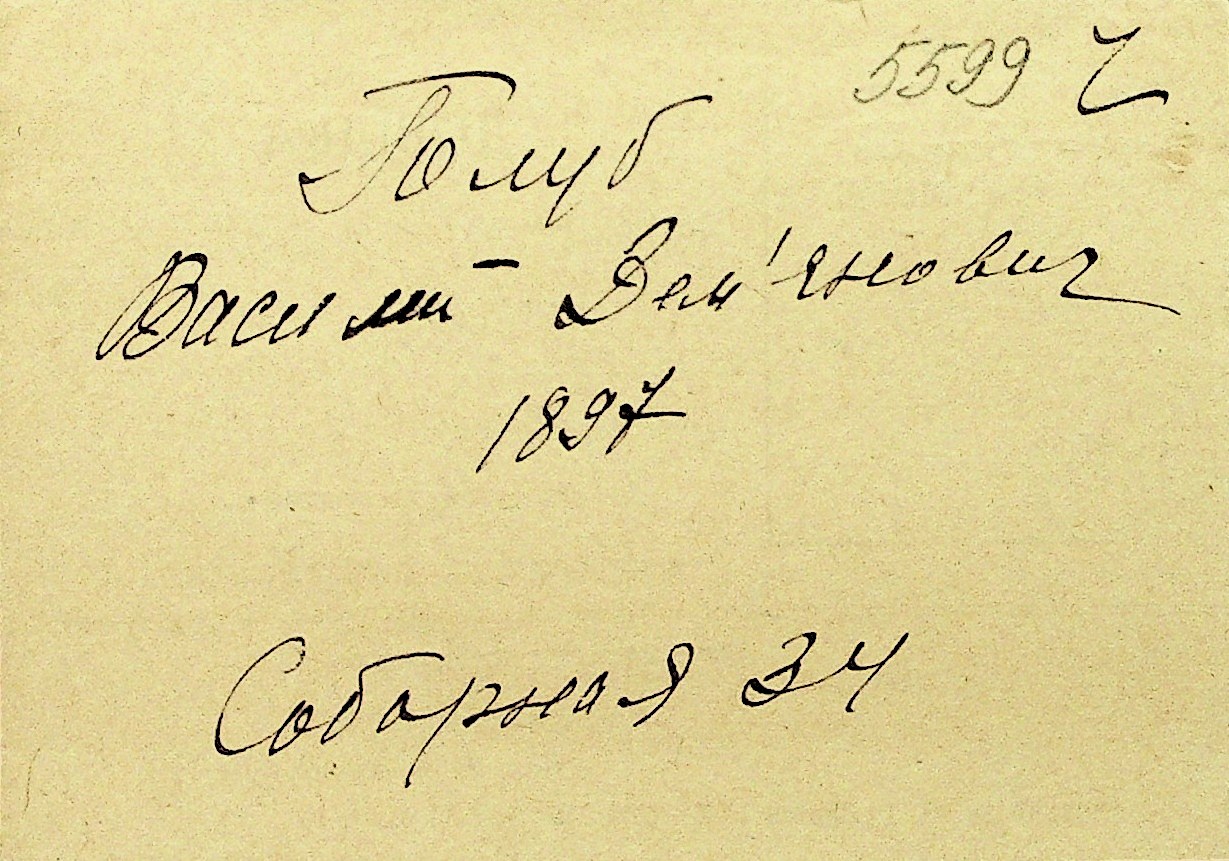 5599 Ч
Голуб
Василий Дем'янович
1897
Соборная 34